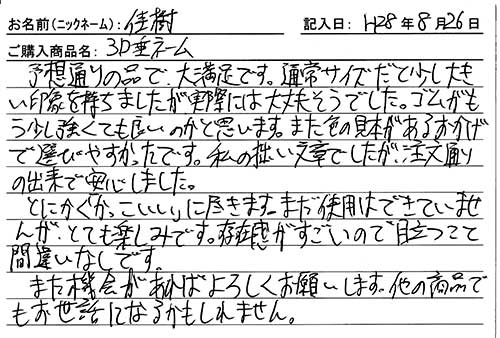 お名前(ニックネーム):佳樹 記入日:H28年8月26日
ご購入商品名:3D垂ネーム
予想通りの品で、大満足です。通常サイズだと少し大き
い印象を持ちましたが実際には大丈夫そうでした。ゴムがも
う少し強くても良いのかと思います。また色の見本があるおかげ
で選びやすかったです。私の拙い文章でしたが、注文通り
の出来で安心しました。
とにかく「かっこいい」に尽きます。まだ使用はできていませ
んが、とても楽しみです。存在感がすごいので目立つこと
間違いなしです。
また機会があればよろしくお願いします。他の商品で
もお世話になるかもしれません。